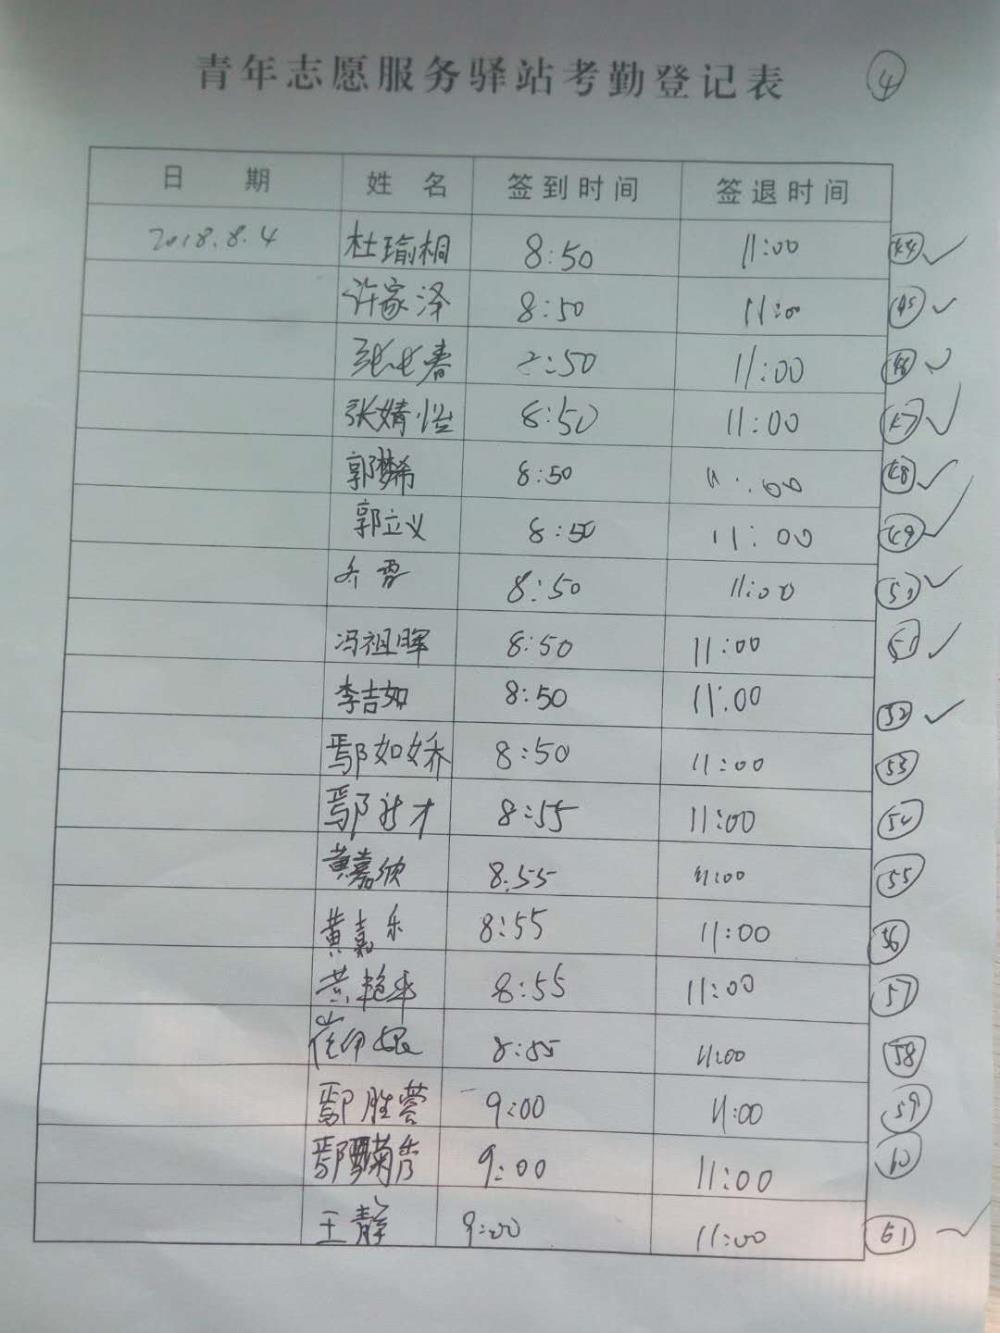 青年志愿服务驿站考勤登记表 ④
日 期 姓 名 签到时间 签退时间
2018.8.4 杜瑜桐 8:50 11:00 44 ✓
许家泽 8:50 11:00 45 ✓
张 春 2:50 11:00 46 ✓
张婧怡 8:50 11:00 47 ✓
郭梦希 8:50 11:00 48 ✓
郭立义 8:50 11:00 49 ✓
乔雪 8:50 11:00 50 ✓
冯祖晖 8:50 11:00 51 ✓
李吉如 8:50 11:00 52 ✓
鄢如娇 8:50 11:00 53
鄢 才 8:55 11:00 54
黄嘉欣 8.55 11:00 55
黄嘉乐 8:55 11:00 56
黄艳平 8:55 11:00 57
崔 8:55 11:00 58
鄢胜蓉 9:00 11:00 59
鄢 菊秀 9:00 11:00 60
王静 9:00 11:00 61 ✓